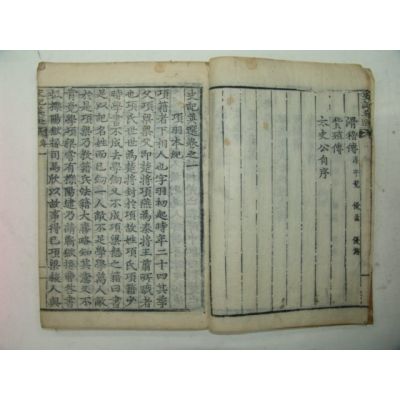 滑稽傳 淳于髡 優孟 優旃
貨殖傳
太史公自序
史記英選卷之一
項羽本紀
項籍者下相人也字羽初起時年二十四其季
父項梁梁父即楚將項燕爲秦將王翦所戮者
也項氏世世爲楚將封於項故姓項氏項籍少
時學書不成去學劍又不成項梁怒之籍曰書
足以記名姓而已劍一人敵不足學學萬人敵
於是項梁乃教籍兵法籍大喜略知其意又不
肯竟學項梁嘗有櫟陽逮乃請蘄獄掾曹咎書
抵櫟陽獄掾司馬欣以故事得已項梁殺人與